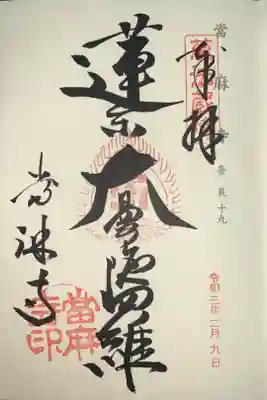 當麻寺
奈良十九
奉拝
蓮糸大曼荼羅
當麻寺
當麻寺印
令和三年二月九日